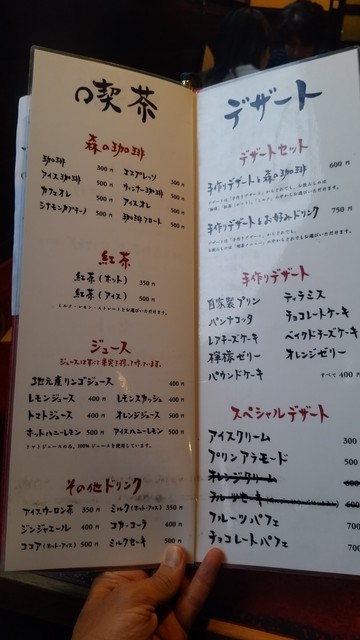 喫茶
森の珈琲
珈琲 300円 エスプレッソ 300円
アイス珈琲 500円 ウィンナー珈琲 500円
カフェオレ 500円 アイスオレ 500円
シナモンカプチーノ 500円 珈琲フロート 500円
紅茶
紅茶(ホット) 350円
紅茶(アイス) 500円
ジュース
ジュースはすべて果実を搾って作っています。
地元産リンゴジュース 400円
レモンジュース 400円 レモンスカッシュ 400円
トマトジュース 400円 オレンジジュース 500円
ホットハニーレモン 500円 アイスハニーレモン 500円
その他ドリンク
アイスウーロン茶 350円 ミルク(ホット・アイス) 350円
ジンジャエール 400円 コカ・コーラ 400円
ココア(ホット・アイス) 500円 ミルクセーキ 500円
デザート
デザートセット
手作りデザートと森の珈琲 600円
手作りデザートとお好みドリンク 750円
手作りデザート
自家製プリン ティラミス
パンナコッタ チョコレートケーキ
レアチーズケーキ ベイクドチーズケーキ
檸檬ゼリー オレンジゼリー
パウンドケーキ すべて400円
スペシャルデザート
アイスクリーム 300
プリンアラモード 500
オレンジクリーム 600
フルーツセーキ 600
フルーツパフェ 700
チョコレートパフェ 700